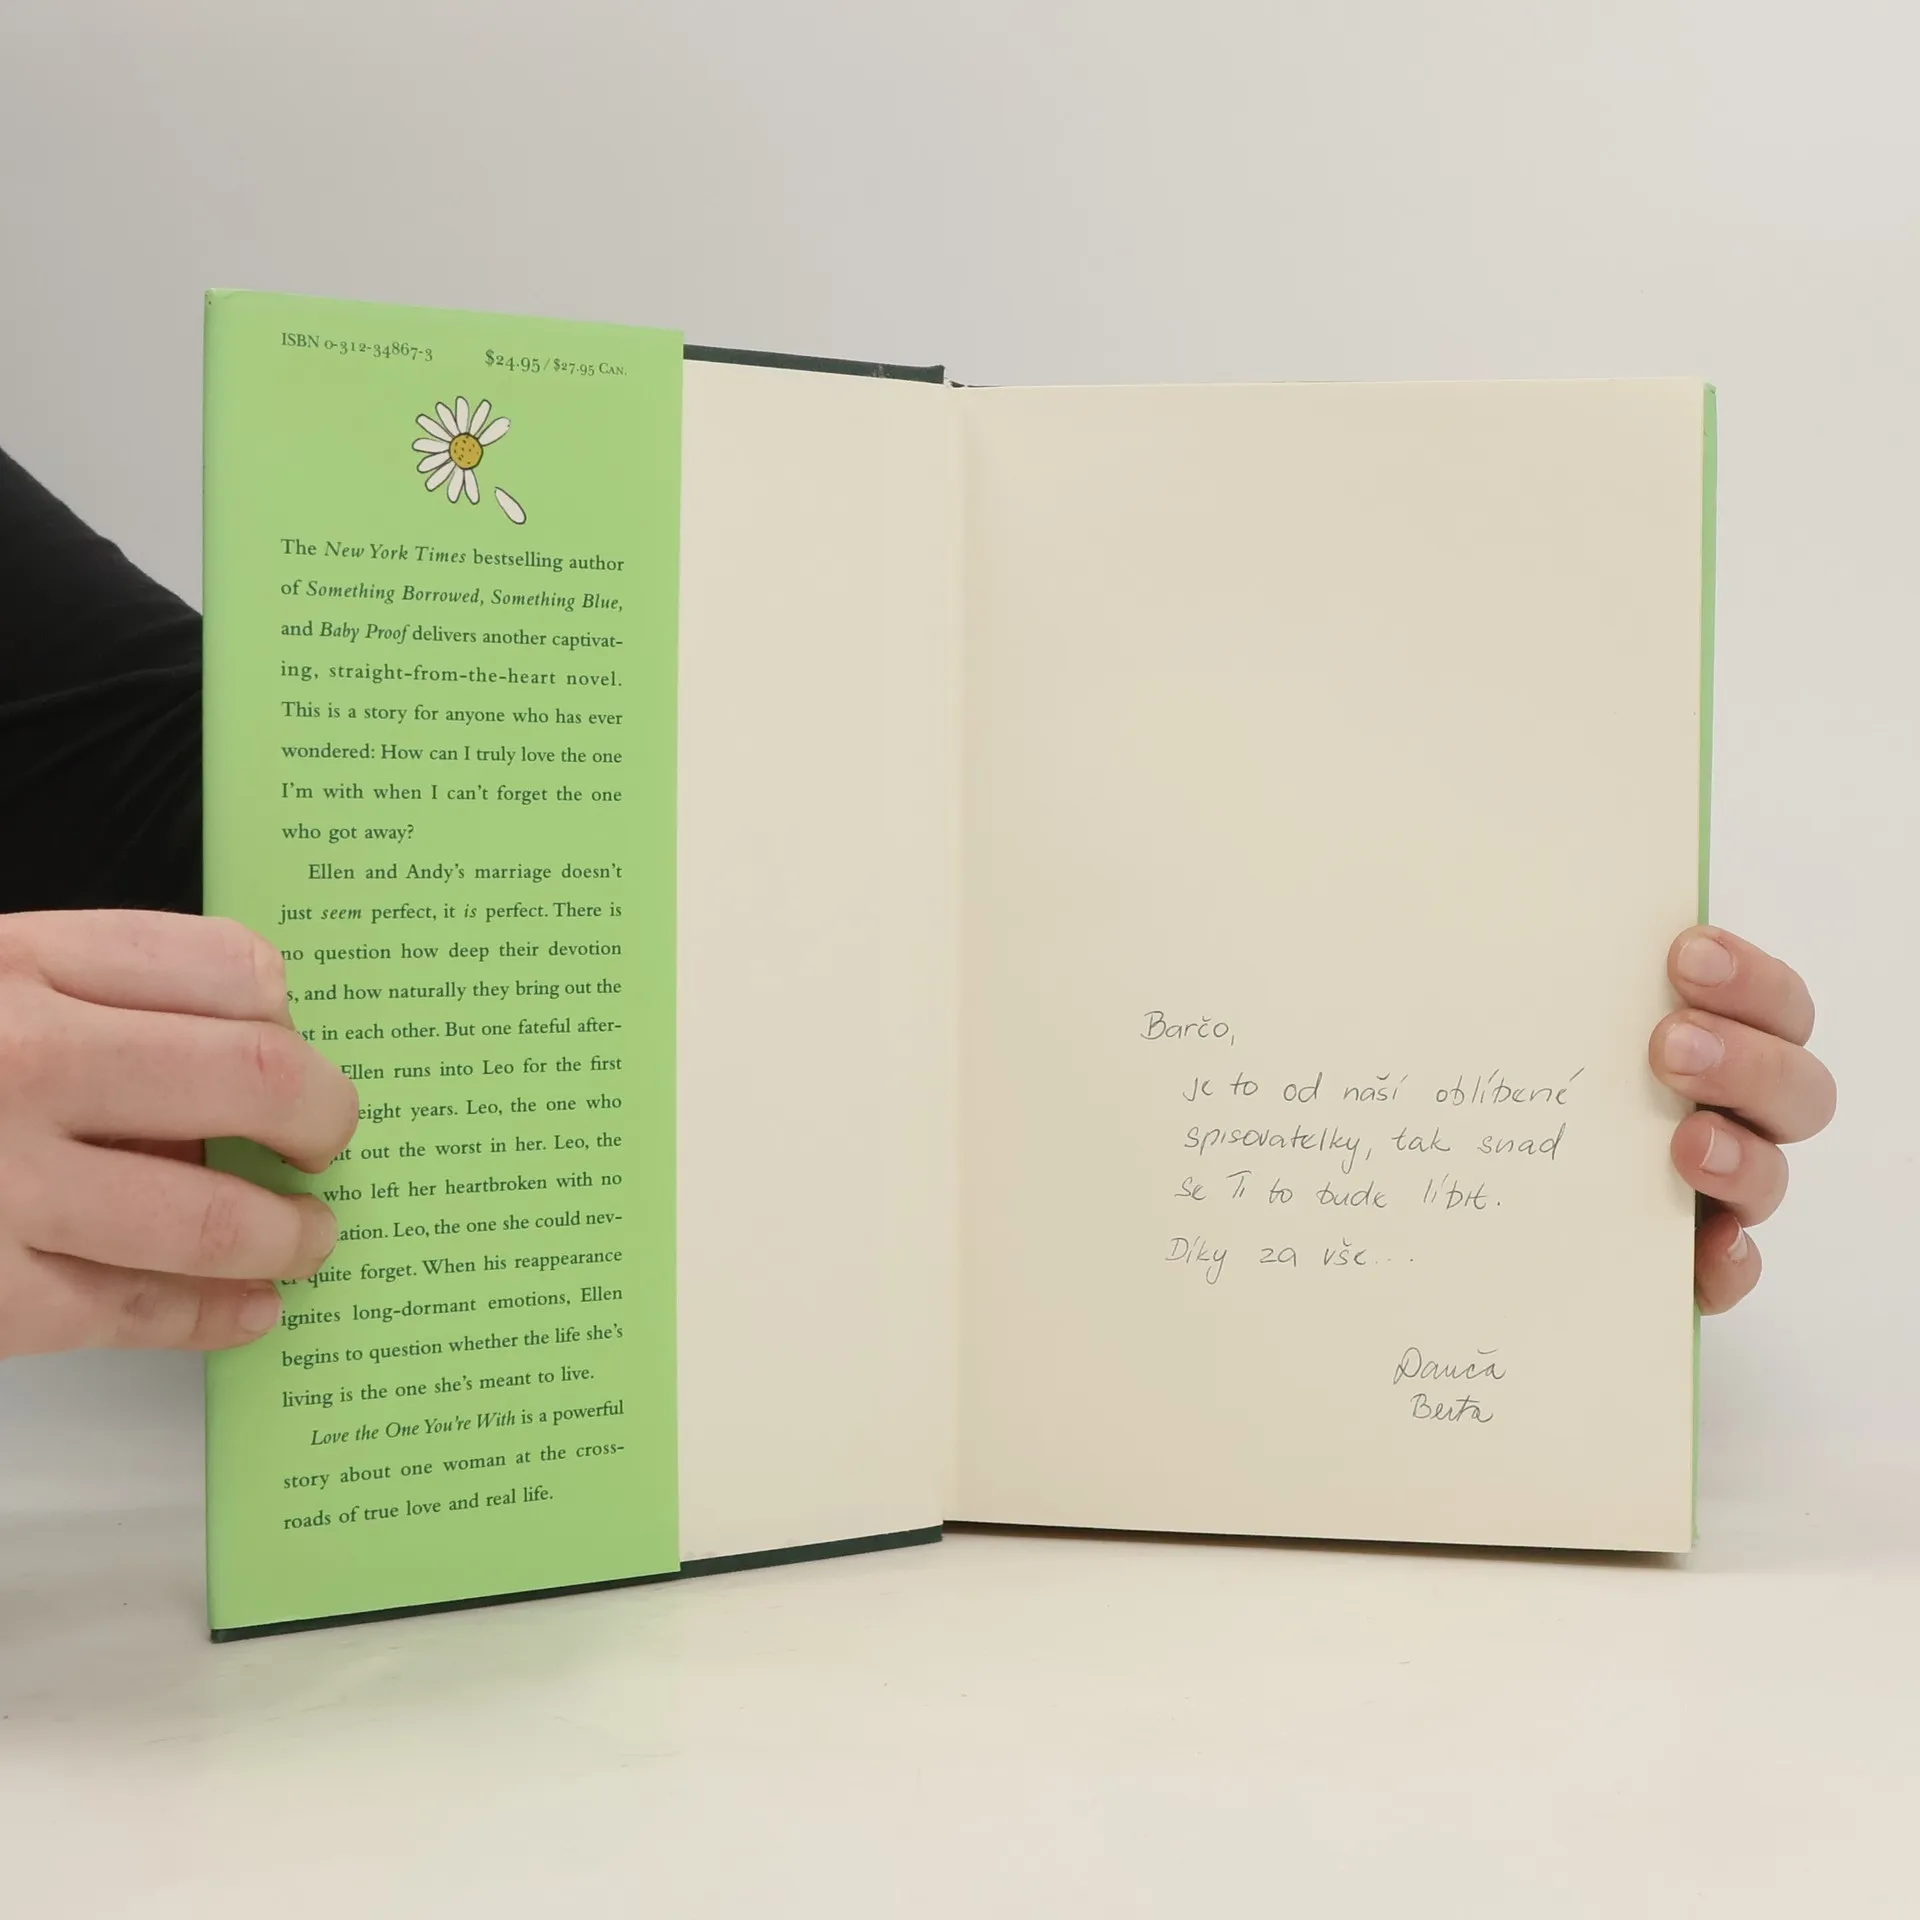 ISBN 0-312-34867-3
$24.95 / $27.95 CAN.
The New York Times bestselling author
of Something Borrowed, Something Blue,
and Baby Proof delivers another captivat-
ing, straight-from-the-heart novel.
This is a story for anyone who has ever
wondered: How can I truly love the one
I'm with when I can't forget the one
who got away?
Ellen and Andy's marriage doesn't
just seem perfect, it is perfect. There is
no question how deep their devotion
and how naturally they bring out the
in each other. But one fateful after-
Ellen runs into Leo for the first
eight years. Leo, the one who
out the worst in her. Leo, the
who left her heartbroken with no
Leo, the one she could nev-
quite forget. When his reappearance
ignites long-dormant emotions, Ellen
begins to question whether the life she's
living is the one she's meant to live.
Love the One You're With is a powerful
story about one woman at the cross-
roads of true love and real life.
Barčo,
je to od naší oblíbené
spisovatelky, tak snad
se Ti to bude líbit.
Díky za vše...
Danča
Berta